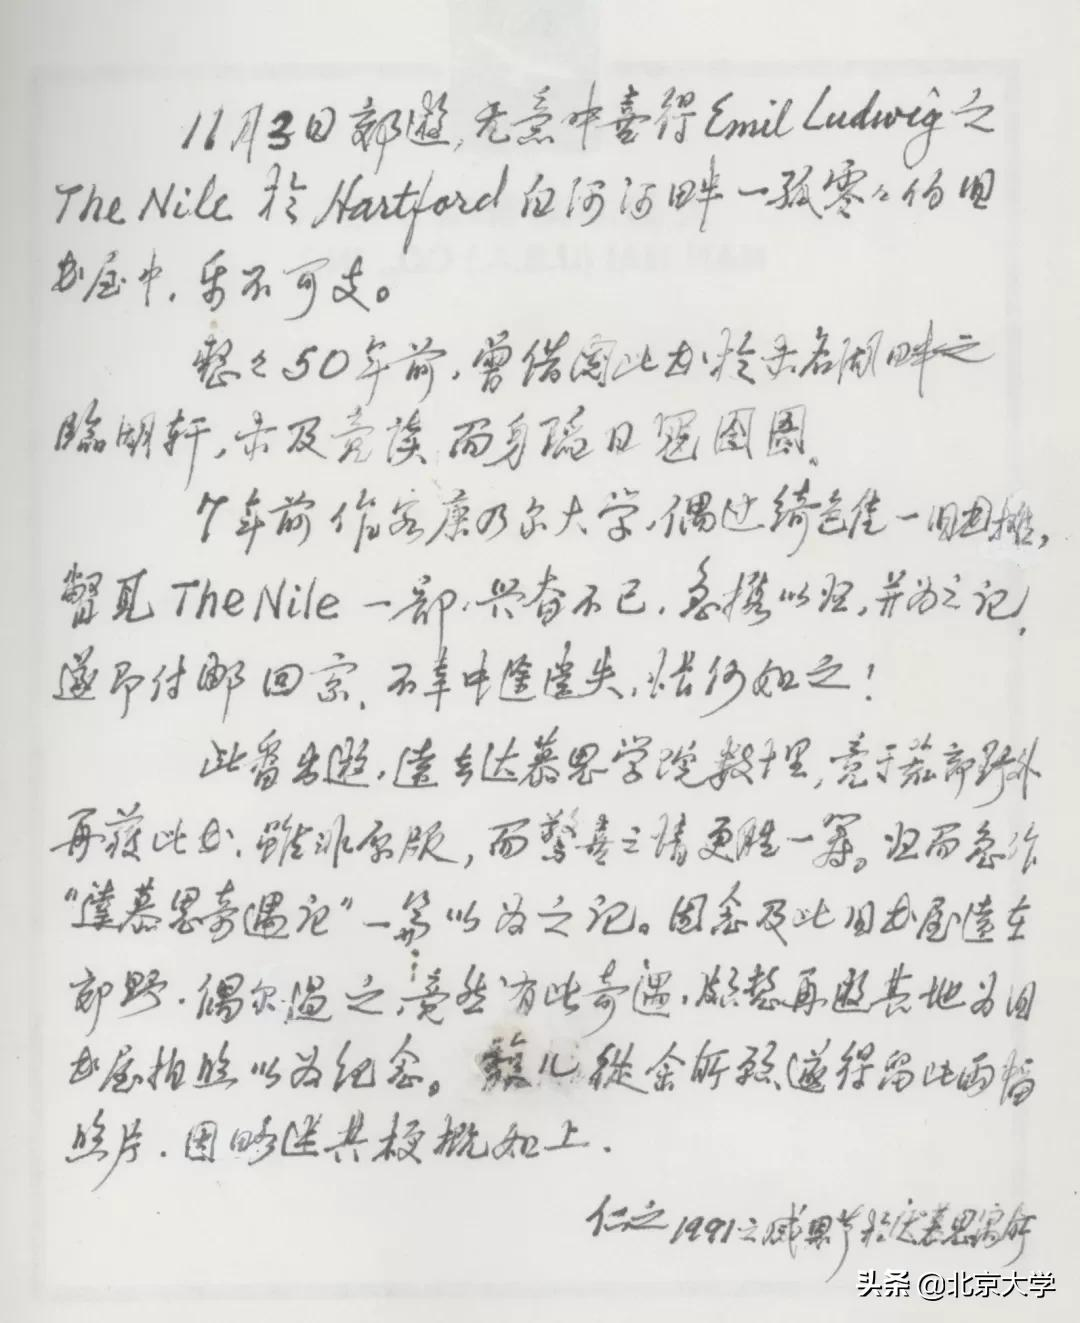 11月3日郊遊,无意中喜得Emil Ludwig之
The Nile 於 Hartford 白河河畔一孤零々的旧
书屋中,乐不可支。
整々50年前,曾借阅此书於未名湖畔之
臨湖轩,未及竟读而身陷日寇囹圄。
7年前作客康乃尔大学,偶过绮色佳一旧书摊,
瞥見 The Nile 一部,兴奋不已,急携以归,并为之记,
遂即付邮回京,不幸中途遗失,怅何如之!
此番出遊,遠去达慕思学院数十里,竟于荒郊野外
再获此书,虽非原版,而驚喜之情更胜一筹。归而急作
“達慕思奇遇记”一篇以为之记。因念及此旧书屋遠在
郊野,偶尔过之,竟然有此奇遇,颇愁再遊其地为旧
书屋拍照以为纪念。馥儿從余所願,遂得留此两幅
照片,因略述其梗概如上.
仁之1991之感恩节於达慕思寓所
头条 @北京大学